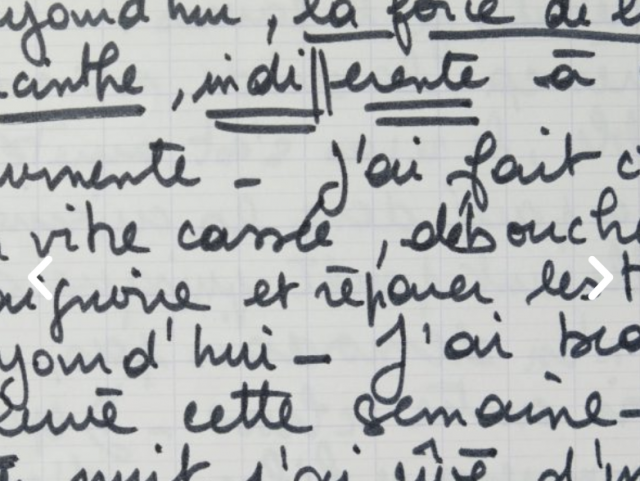 ujourd'hui, la force de l
canthe, indifferente à
umente - J'ai fait c
vitre cassée, débouche
aignoire et réparer les t
jourd'hui - J'ai
cette semaine -
nuit j'ai rêvé d'